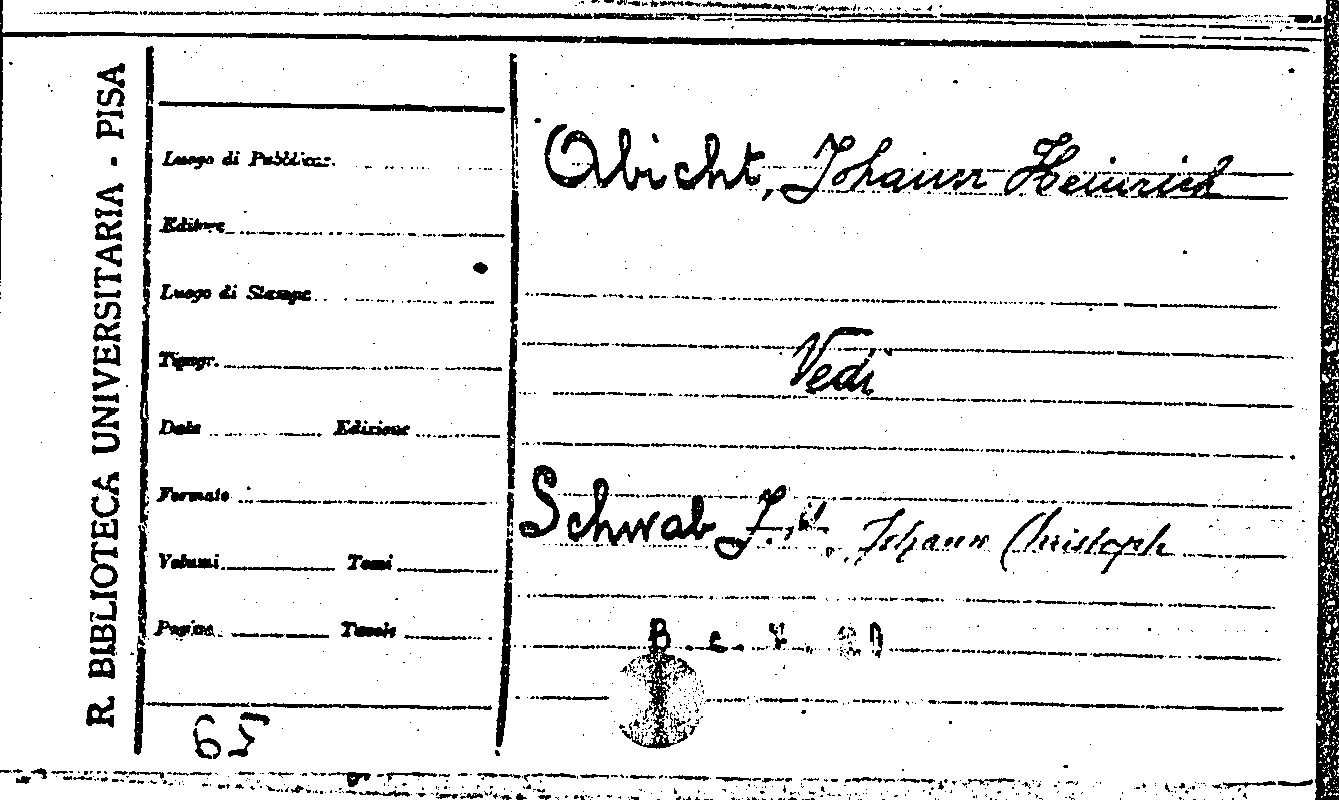 R. BIBLIOTECA UNIVERSITARIA - PISA
Luogo di Pubblicaz.
Editore
Luogo di Stampa
Tipogr.
Data Edizione
Formato
Volumi Tomi
Pagine Tavole
65
Abicht, Johann Heinrich
Vedi
Schwab J. Johann Christoph
B. c.